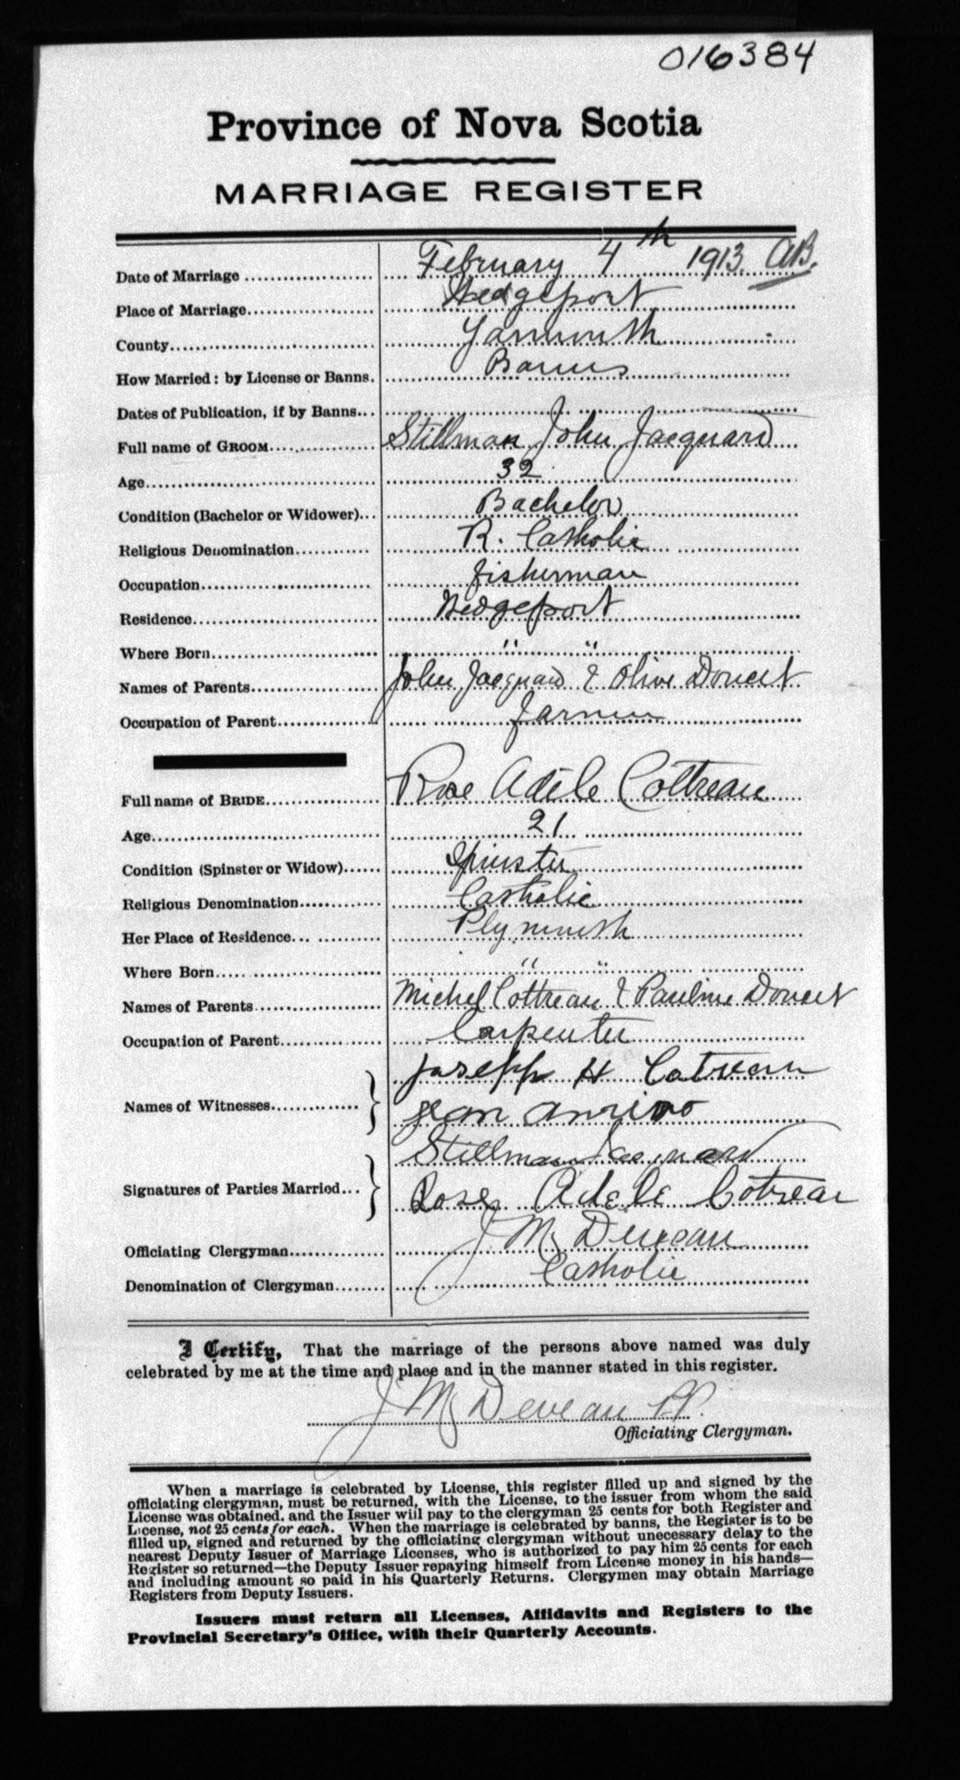 016384
Province of Nova Scotia
MARRIAGE REGISTER
Date of Marriage February 4th 1913 AB.
Place of Marriage Wedgeport
County Yarmouth
How Married: by License or Banns. Banns
Dates of Publication, if by Banns
Full name of GROOM Stillman John Jacquard
Age 32
Condition (Bachelor or Widower) Bachelor
Religious Denomination R. Catholic
Occupation fisherman
Residence Wedgeport
Where Born " "
Names of Parents John Jacquard & Olive Doucet
Occupation of Parent farmer
Full name of BRIDE Rose Adèle Cottreau
Age 21
Condition (Spinster or Widow) Spinster
Religious Denomination Catholic
Her Place of Residence Plymouth
Where Born " "
Names of Parents Michel Cottreau & Pauline Doucet
Occupation of Parent Carpenter
Joseph H Cotreau
Names of Witnesses
Jean
Stillman Jacquard
Signatures of Parties Married
Rose Adele Cotreau
Officiating Clergyman J M Deveau
Denomination of Clergyman Catholic
I Certify, That the marriage of the persons above named was duly
celebrated by me at the time and place and in the manner stated in this register.
J M Deveau P.P.
Officiating Clergyman.
When a marriage is celebrated by License, this register filled up and signed by the
officiating clergyman, must be returned, with the License, to the issuer from whom the said
License was obtained, and the Issuer will pay to the clergyman 25 cents for both Register and
License, not 25 cents for each. When the marriage is celebrated by banns, the Register is to be
filled up, signed and returned by the officiating clergyman without unnecessary delay to the
nearest Deputy Issuer of Marriage Licenses, who is authorized to pay him 25 cents for each
Register so returned—the Deputy Issuer repaying himself from License money in his hands—
and including amount so paid in his Quarterly Returns. Clergymen may obtain Marriage
Registers from Deputy Issuers.
Issuers must return all Licenses, Affidavits and Registers to the
Provincial Secretary's Office, with their Quarterly Accounts.